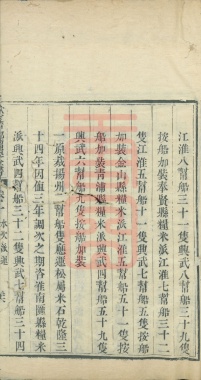 江淮八幫船三十一隻興武八幫船三十九隻
按船加裝奉賢縣糧米派江淮七幫船三十二
隻江淮五幫船十一隻興武七幫船三十一隻按
加裝金山縣糧米派江淮五幫船五十一隻按
船加裝青浦縣糧米派興武四幫船五十九隻
興武六幫船九隻按船加裝
一原裁揚州二幫船隻應運松屬米石乾隆三
十四年因值三年調次之期咨准南匯縣糧米
派興武四幫船三十二隻興武七幫船三十四